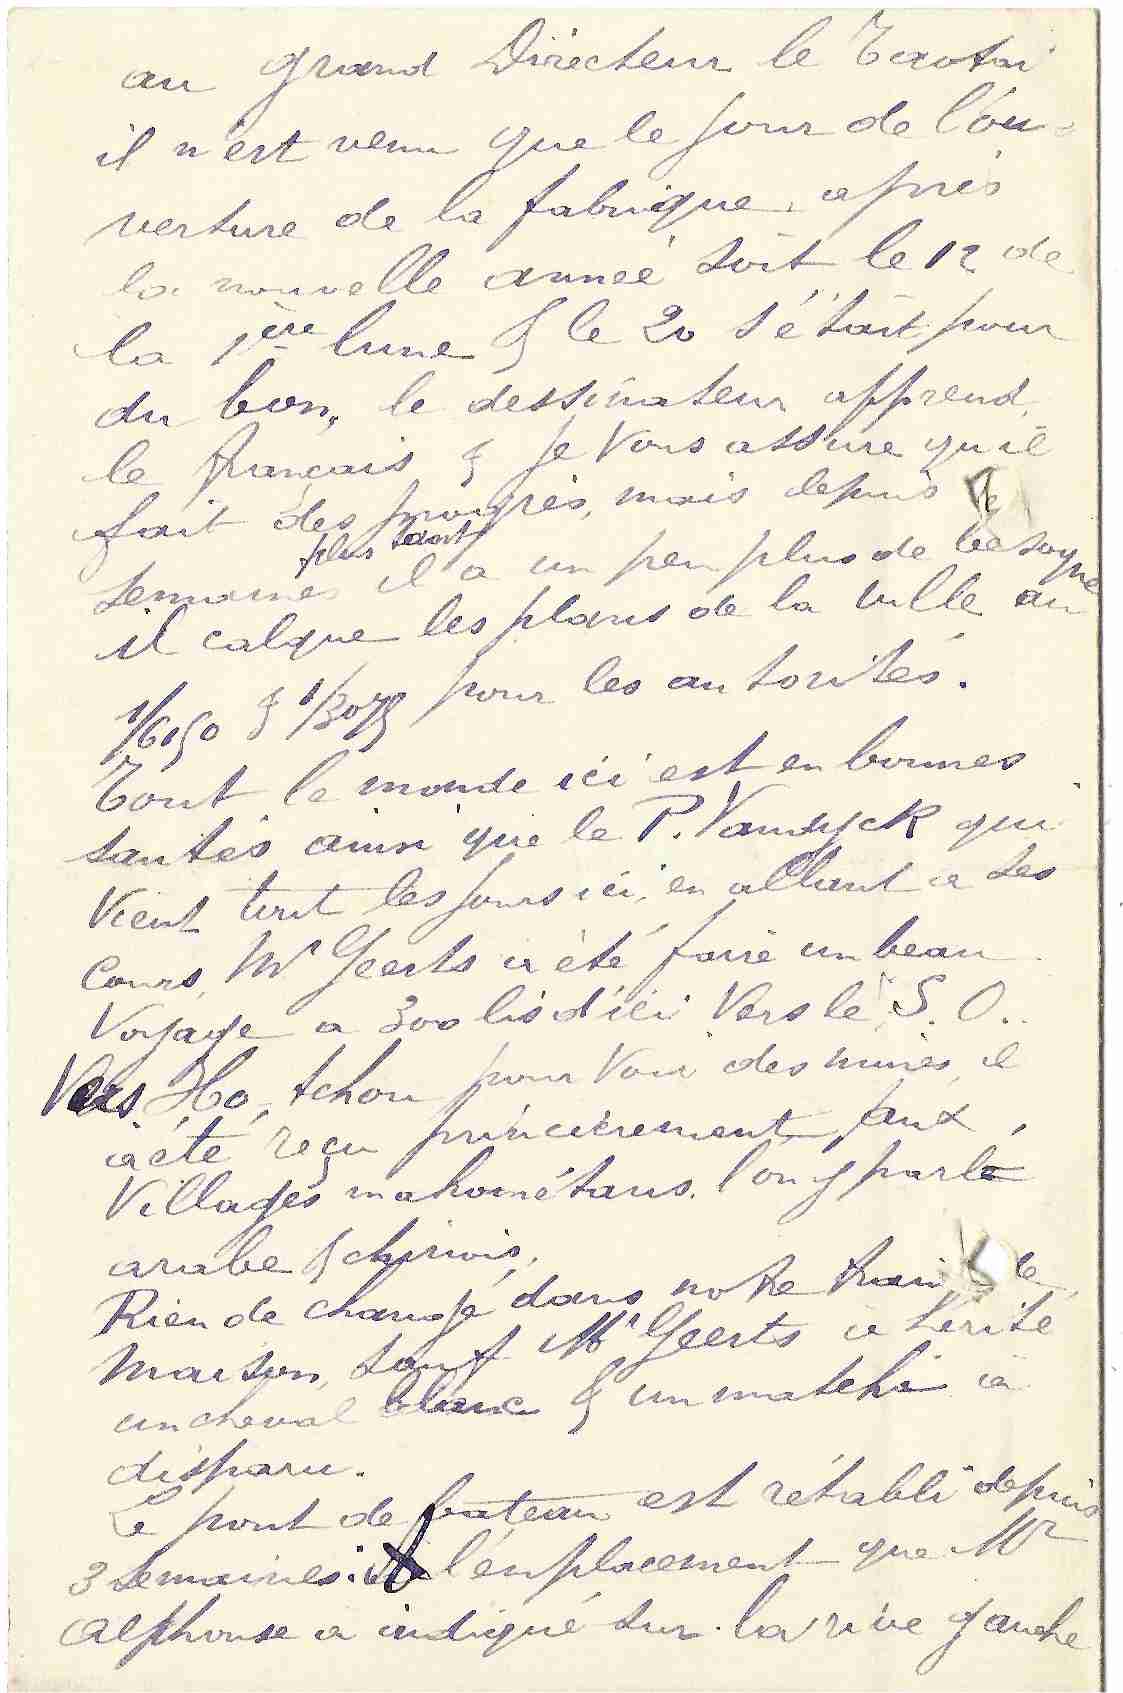 au grand Directeur le Taotai
il n'est venu que le jour de l'ou-
verture de la fabrique, après
la nouvelle année soit le 12 de
la 1ère lune & le 20 s'était pour
du bon, le dessinateur apprend
le français & je vous assure qu'il
fait des progrès, mais depuis
plus tard
semaines il a un peu plus de besogne
il calque les plans de la ville au
1/6150 & 1/3075 pour les autorités.
Tout le monde ici est en bonnes
santés ainsi que le P. Vandyck qui
vient tout les jours ici, en allant a ses
cours, Mr Geerts a été faire un beau
voyage a 300 lis d'ici vers le S. O..
vers Ho, tchou pour voir des mines, il
a été reçu princièrement, aux
villages mahométans. l'on y parle
arabe & chinois,
Rien de changé dans notre train de
maison, sauf Mr Geerts a hérité
un cheval blanc & un matchi a
disparu.
Le pont de bateau est rétabli depuis
3 semaines. l'enplacement que Mr
Alphonse a indiqué sur la rive gauche